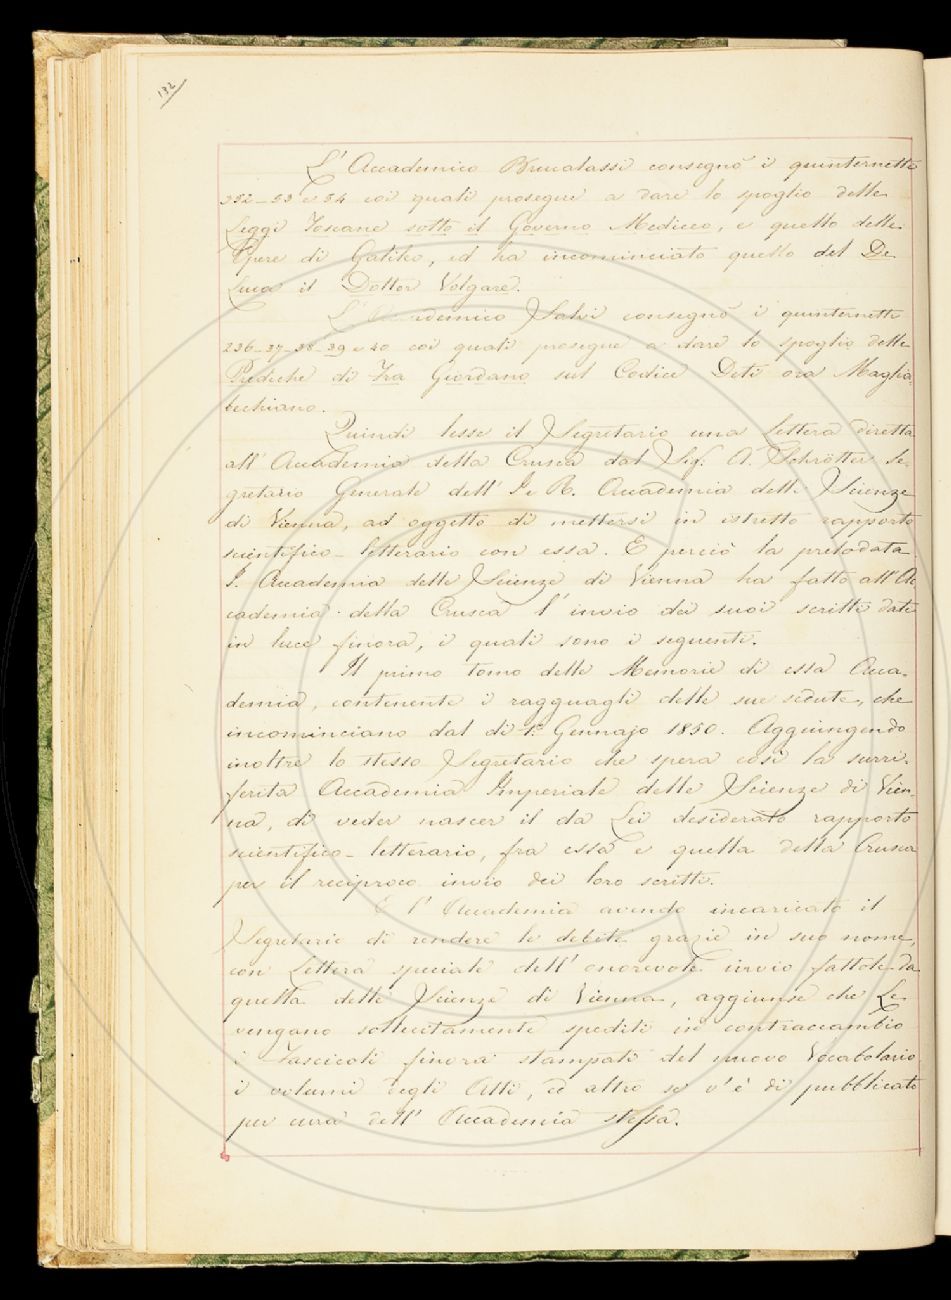 132
L' Accademico Brucalassi consegnò i quinternetti
352_53 e 54 coi quali prosegue a dare lo spoglio delle
Leggi Toscane sotto il Governo Mediceo, e quello delle
Opere di Galileo, ed ha incominciato quello del De
Luca il Dottor Volgare.
L' Accademico Salvi consegnò i quinternetti
236_37_38_39 e 40 coi quali prosegue a dare lo spoglio delle
Prediche di Fra Giordano sul Codice Deti ora Maglia-
bechiano.
Quindi lesse il Segretario una Lettera diretta
all' Accademia della Crusca dal Sig: A. Schrötter Se-
gretario Generale dell' I. e R. Accademia delle Scienze
di Vienna, ad oggetto di mettersi in istretto rapporto
scientifico_letterario con essa. E perciò la prelodata
I. Accademia delle Scienze di Vienna ha fatto all' Ac
cademia della Crusca l' invio dei suoi scritti dati
in luce finora, i quali sono i seguenti.
Il primo tomo delle Memorie di essa Acca-
demia, contenente i ragguagli delle sue sedute, che
incominciano dal dì 1º Gennajo 1850. Aggiungendo
inoltre lo stesso Segretario che spera così la surri-
ferita Accademia Imperiale delle Scienze di Vien-
na, di veder nascer il da Lei desiderato rapporto
scientifico_letterario, fra essa e quella della Crusca
per il reciproco invio dei loro scritti.
E l' Accademia avendo incaricato il
Segretario di rendere le debite grazie in suo nome,
con Lettera speciale dell' onorevole invio fattole da
quella delle Scienze di Vienna, aggiunse che Le
vengano sollecitamente spediti in contraccambio
i Fascicoli finora stampati del nuovo Vocabolario
i volumi degli Atti, ed altro se v' è di pubblicato
per cura dell' Accademia stessa.